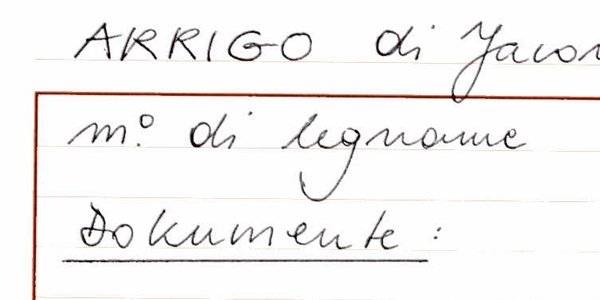 ARRIGO di Jacom
m.º di legname
Dokumente: